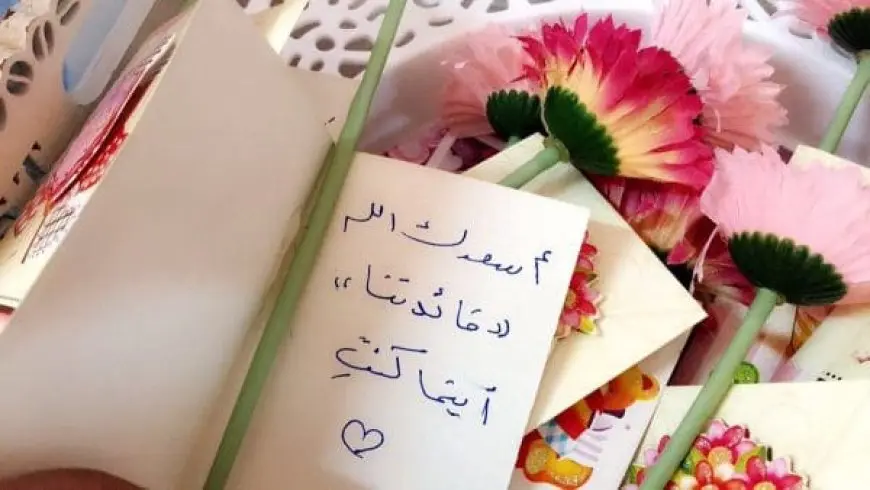 أسعدك الله
«قائدتنا»
أينما كنتِ